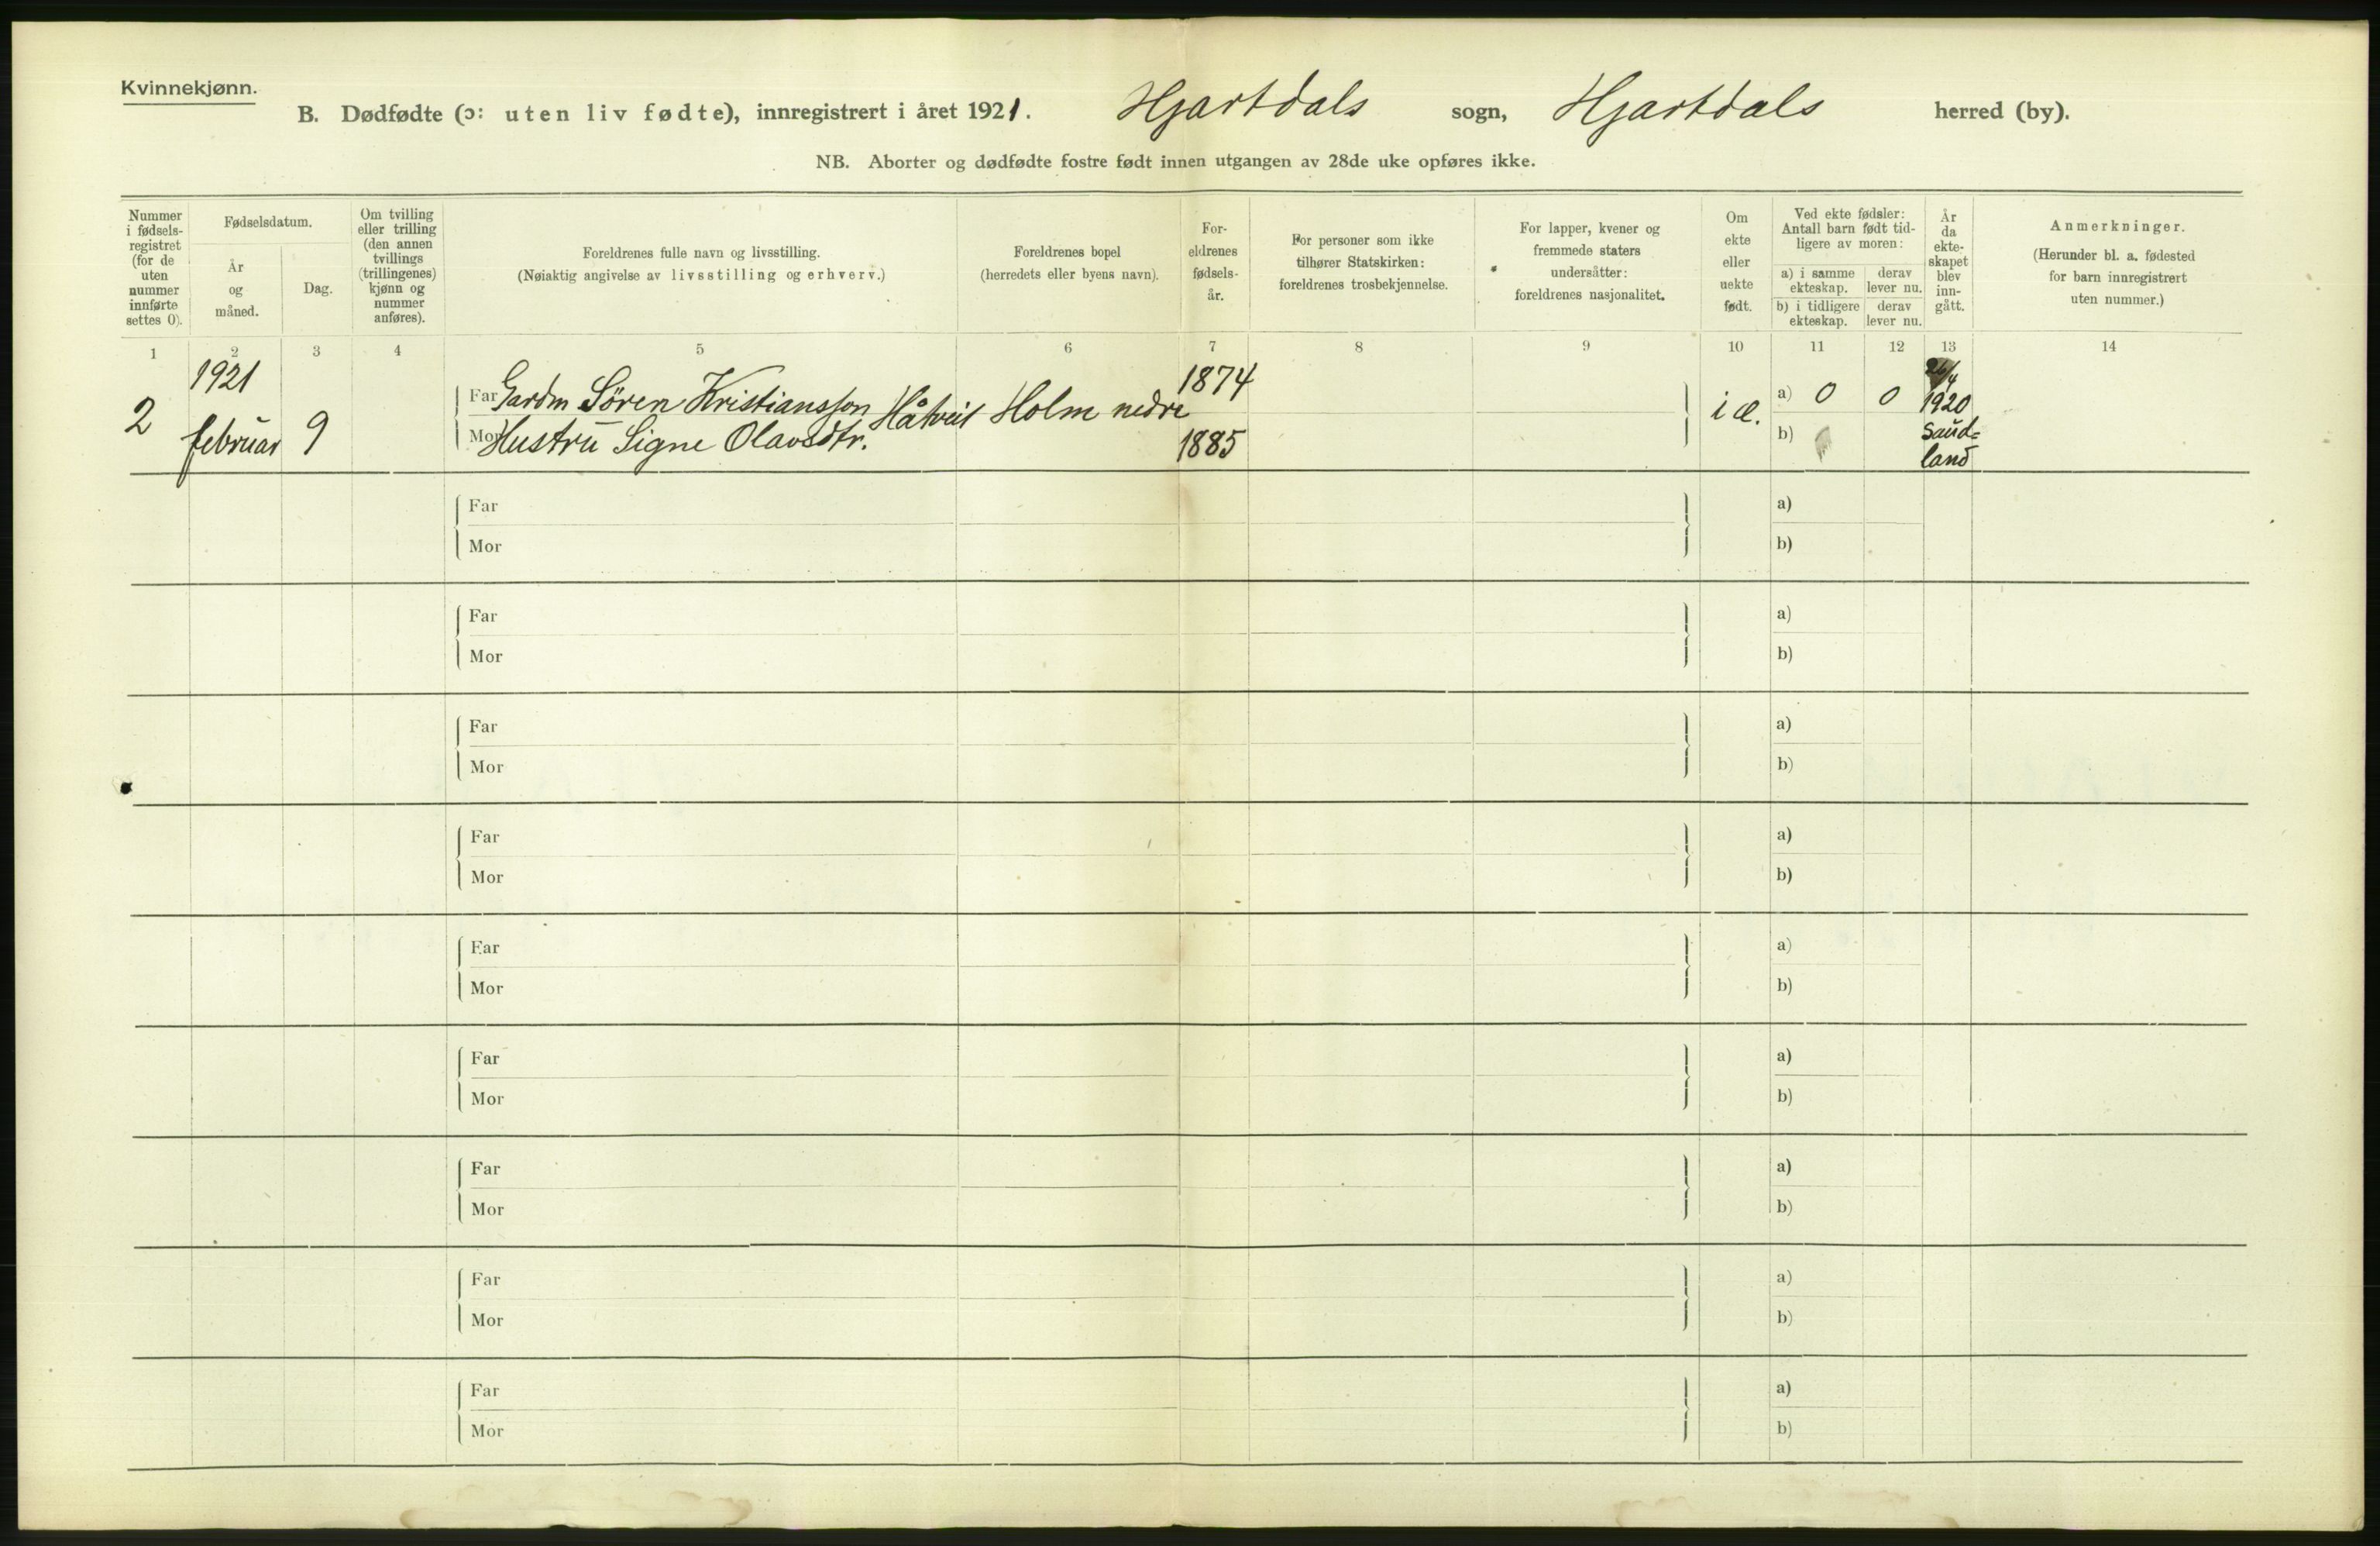 Kvinnekjønn.
B. Dødfødte (ɔ: uten liv fødte), innregistrert i året 1921. Hjartdals sogn, Hjartdals herred (by).
NB. Aborter og dødfødte fostre født innen utgangen av 28de uke opføres ikke.
Nummer
i fødsels-
registret
(for de
uten
nummer
innførte
settes 0).
Fødselsdatum.
År
og
måned.
Dag.
Om tvilling
eller trilling
(den annen
tvillings
(trillingenes)
kjønn og
nummer
anføres).
Foreldrenes fulle navn og livsstilling.
(Nøiaktig angivelse av livsstilling og erhverv.)
Foreldrenes bopel
(herredets eller byens navn).
For-
eldrenes
fødsels-
år.
For personer som ikke
tilhører Statskirken:
foreldrenes trosbekjennelse.
For lapper, kvener og
fremmede staters
undersåtter:
foreldrenes nasjonalitet.
Om
ekte
eller
uekte
født.
Ved ekte fødsler:
Antall barn født tid-
ligere av moren:
a) i samme
ekteskap.
derav
lever nu.
b) i tidligere
ekteskap.
derav
lever nu.
År
da
ekte-
skapet
blev
inn-
gått.
Anmerkninger.
(Herunder bl. a. fødested
for barn innregistrert
uten nummer.)
1 2 3 4 5 6 7 8 9 10 11 12 13 14
2
1921
februar 9
Far Gardm Søren Kristiansson Håtveit Holm nedre 1874
Mor Hustru Signe Olavsdtr. 1885
i æ.
a) 0 0
b)
26/4
1920
Saud=
land
Far a)
Mor b)
Far a)
Mor b)
Far a)
Mor b)
Far a)
Mor b)
Far a)
Mor b)
Far a)
Mor b)
Far a)
Mor b)
Far a)
Mor b)
Far a)
Mor b)